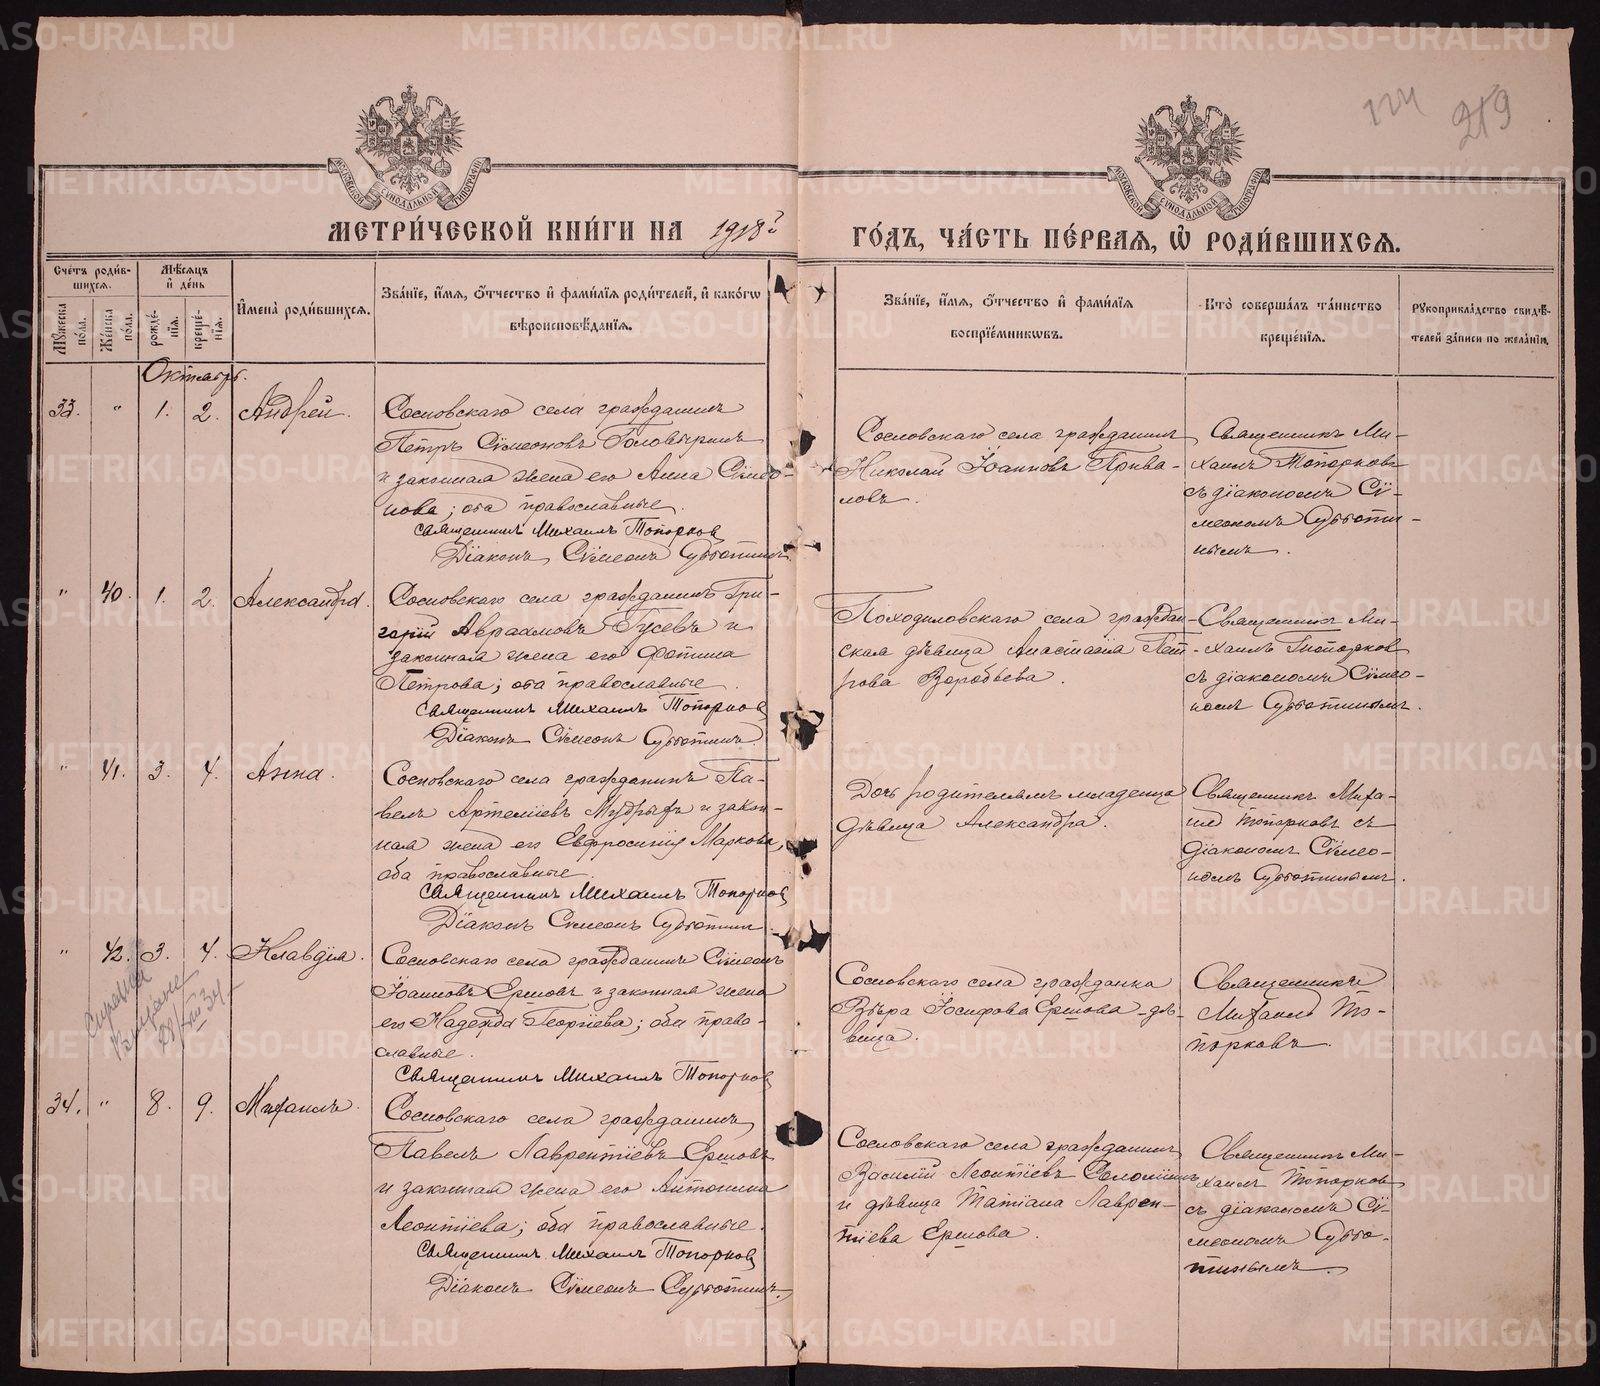 МЕТРИ́ЧЕСКОЙ КНИ́ГИ НА 1918 г.
ГО́ДЪ, ЧА́СТЬ ПЕ́РВАЯ, Ѡ҆ РОДИ́ВШИХСЯ.
219
Сче́тъ роди́в-
шихся.
Му́жеска по́ла.
Же́нска по́ла.
Мѣ́сяцъ и҆ де́нь
рожде́-
нїя.
креще́-
нїя.
И҆мена̀ роди́вшихся.
Зва́нїе, и҆́мя, ѻ҆́тчество и҆ фами́лїя роди́телей, и҆ како́гѡ
вѣроисповѣ́данїя.
Зва́нїе, и҆́мя, ѻ҆́тчество и҆ фами́лїя
воспрїе́мникѡвъ.
Кто̀ соверша́лъ та́инство
креще́нїя.
Рꙋкоприкла́дство свидѣ́-
телей за́писи по жела́нїю.
Октябрь.
33. " 1. 2. Андрей.
Сосновскаго села гражданинъ
Петръ Сѵмеоновъ Головыринъ
и законная жена его Анна Сѵмео-
нова; оба православные.
Священникъ Михаилъ Топорков
Дїаконъ Сѵмеонъ Субботинъ
Сосновскаго села гражданинъ
Николай Іоанновъ Прива-
ловъ.
Священникъ Ми-
хаилъ Топорковъ
съ дїакономъ Сѵ-
меономъ Субботи-
нымъ.
" 40. 1. 2. Александра.
Сосновскаго села гражданинъ Гри-
горій Авраамовъ Гусевъ и
законная жена его Фотина
Петрова; оба православные.
Священникъ Михаилъ Топорков
Дїаконъ Сѵмеонъ Субботинъ
Походиловскаго села граждан-
ская дѣвица Анастасія Пет-
рова Воробьева.
Священникъ Ми-
хаилъ Топорков
съ дїакономъ Сѵмео-
номъ Субботинымъ.
" 41. 3. 4. Анна.
Сосновскаго села гражданинъ Па-
велъ Артеміевъ Мудрыхъ и закон-
ная жена его Евфросинія Маркова,
оба православные.
Священникъ Михаилъ Топорков
Дїаконъ Сѵмеонъ Субботин
Дочь родителямъ младенца
дѣвица Александра.
Священникъ Миха-
ил Топорковъ съ
дїакономъ Сѵмео-
номъ Субботинымъ.
" 42. 3. 4. Клавдія.
Справка
28/XII 34
Сосновскаго села гражданинъ Сѵмеонъ
Іоанновъ Ершовъ и законная жена
его Надежда Георгіева; оба право-
славные.
Священникъ Михаилъ Топорков
Сосновскаго села гражданка
Вѣра Іосифова Ершова - дѣ-
вица.
Священникъ
Михаилъ То-
порковъ.
34. " 8. 9. Михаилъ.
Сосновскаго села гражданинъ
Павелъ Лаврентіевъ Ершовъ
и законная жена его Антонина
Леонтіева; оба православные.
Священникъ Михаилъ Топорков
Дїаконъ Сѵмеонъ Субботинъ.
Сосновскаго села гражданинъ
Василій Леонтіевъ Соломинъ
и дѣвица Татіана Лаврен-
тіева Ершова.
Священникъ Ми-
хаилъ Топорков
съ дїакономъ Сѵ-
меономъ Суббо-
тинымъ.
METRIKI.GASO-URAL.RU